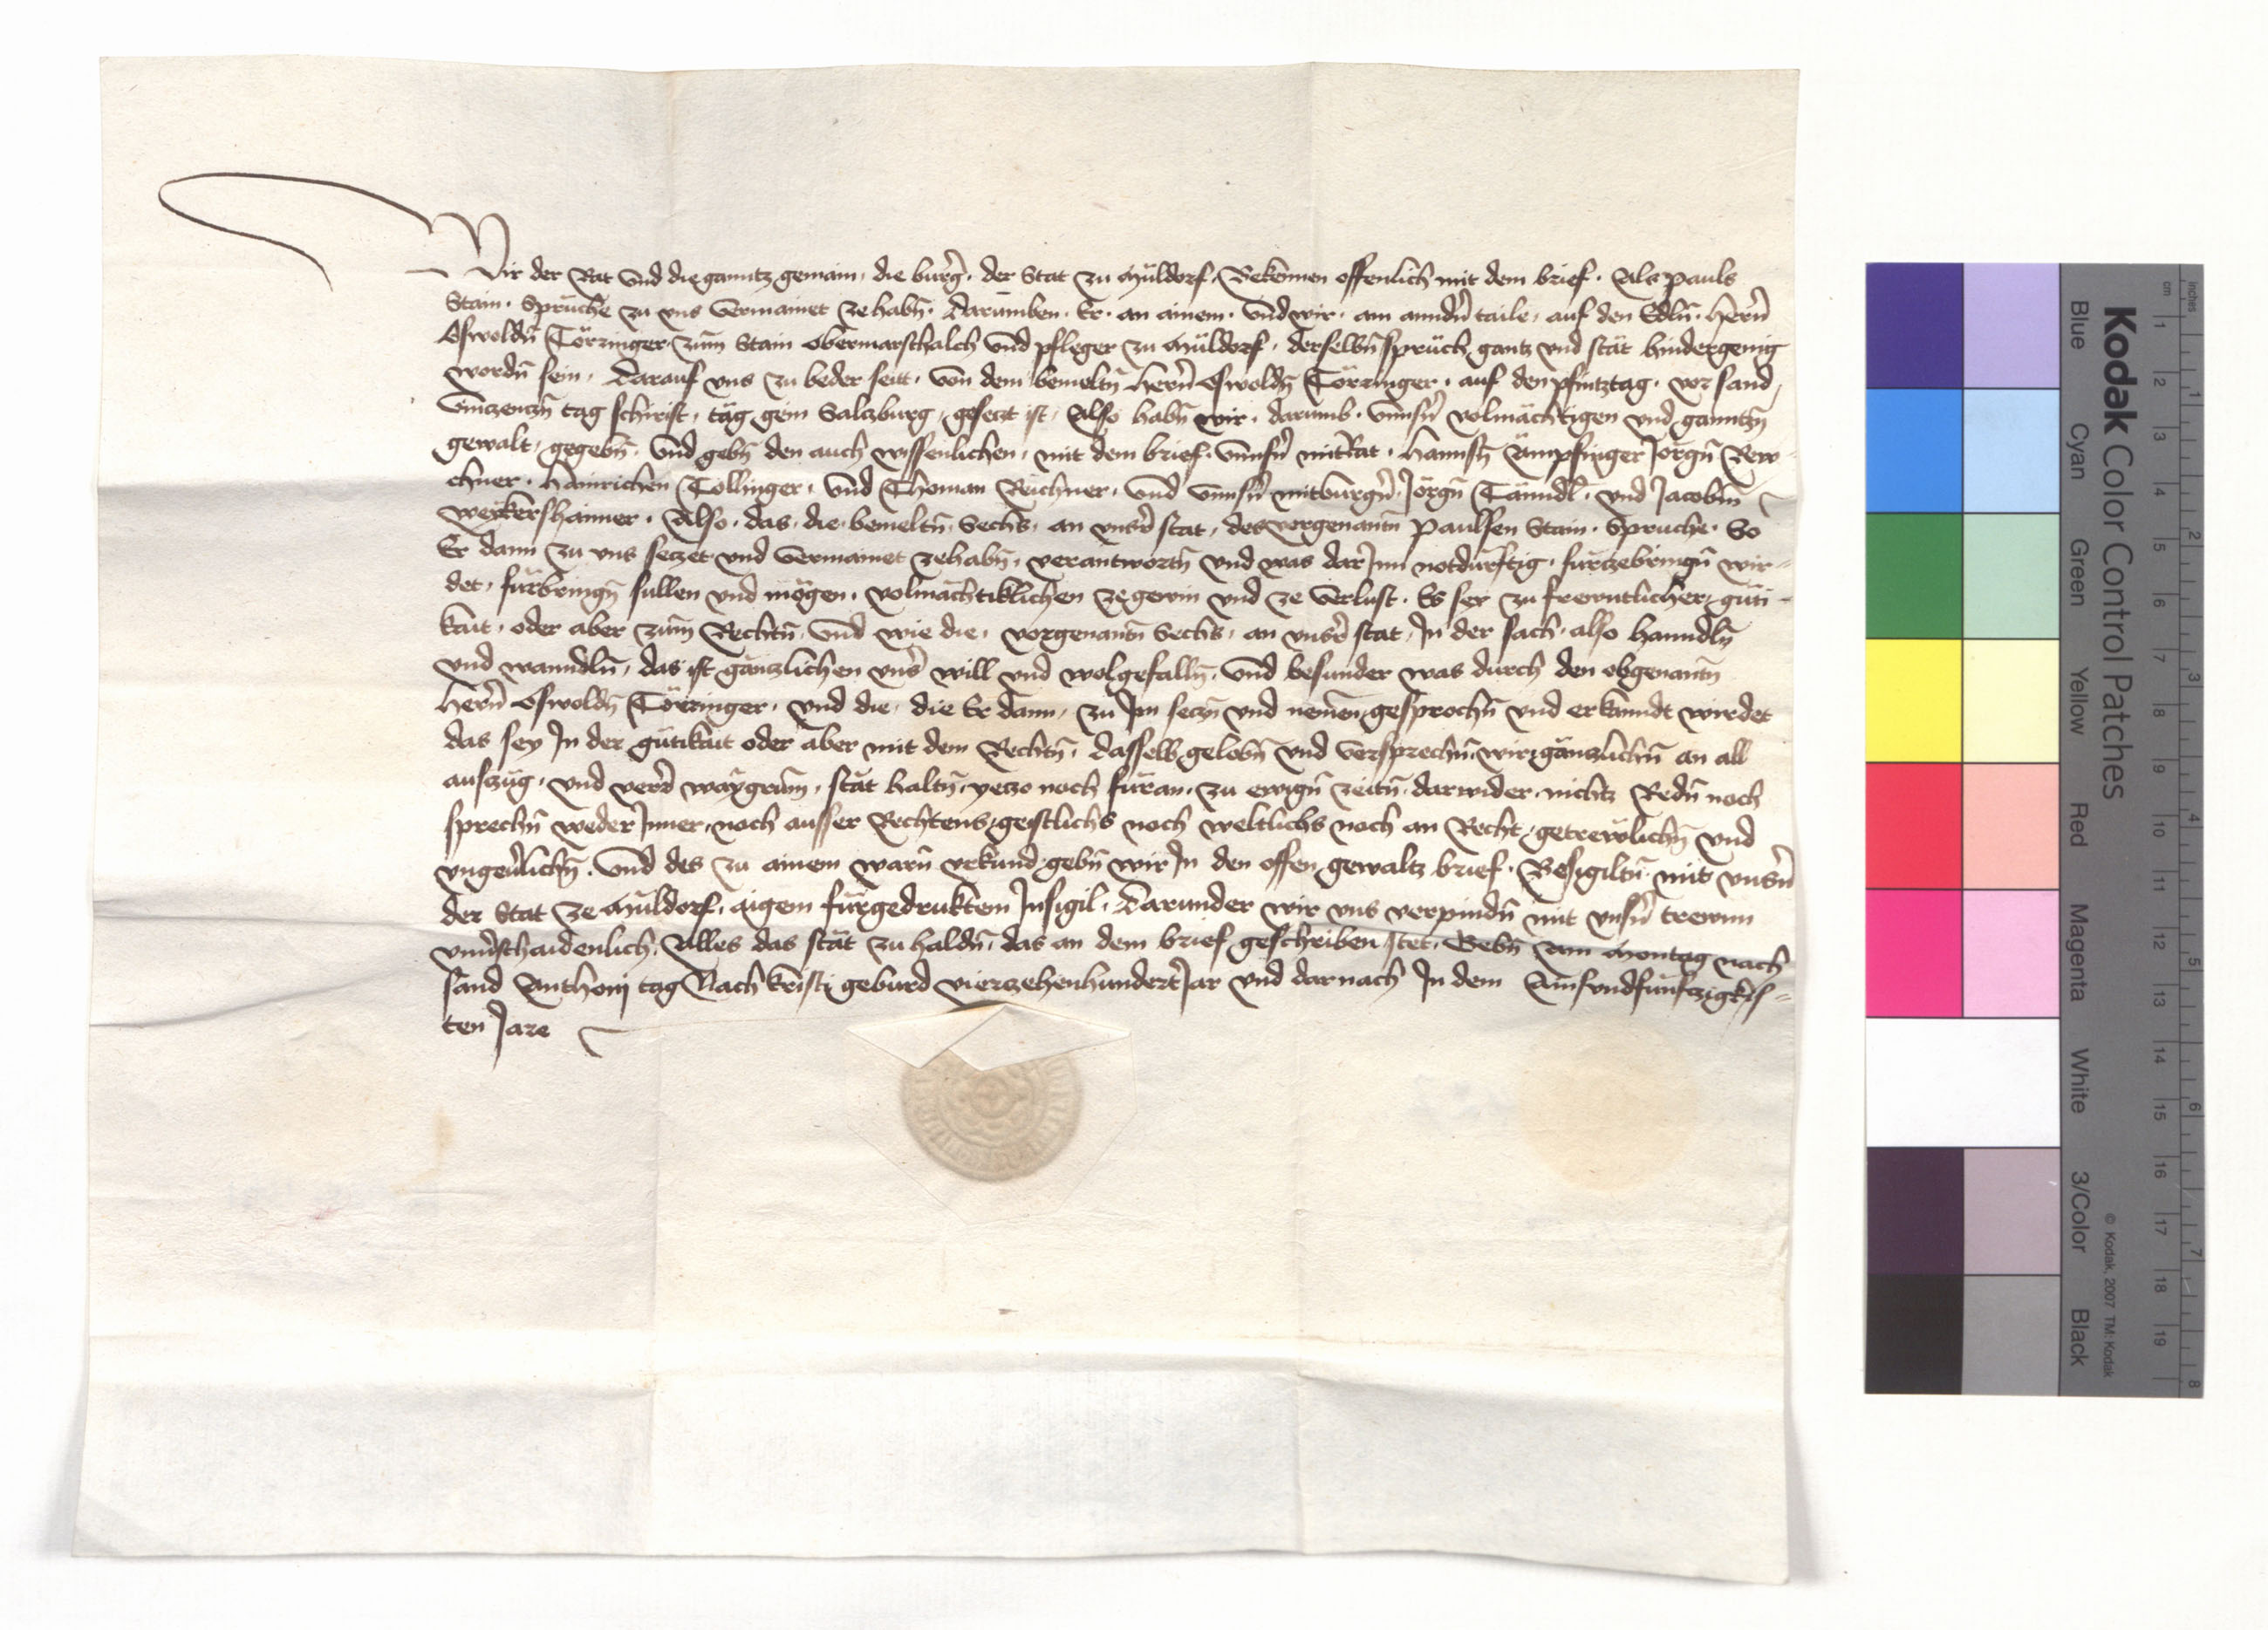 Wir der Rat vnd die ganntz gemain, die burg̉, der Stat zu Müldorf, Bekennen offenlich mit dem brief. Als pauls
Stain, Sprüche zu vns vermainet ze habn̄. darumben, Er, an ainem, vnd wir, am anndn̉ taile, auf den Edln̄, hern̉
Oswoldn̄ Törringer, zum Stain obermarschalch vnd pfleger zu Müldorf, derselbn̄ sprüch gantz vnd stät hindergenig
wordn̄ sein, darauf vns zu beder seitt, von dem bemeltn̄ hern̉ Oswoldn̄ Törringer, auf den pfintztag, vor sand
vinczenczn̄ tag schirist, täg gein Salczburg, gesetzt ist, Also habn̄ wir, darumb, vnnsn̉ volmächtigen vnd ganntzn̄
gewalt, gegebn̄, vnd gebn̄ den auch wissenlichen, mit dem brief, vnnsn̉ mitRat, Hannsn̄ Ampfinger Jorgn̄ Rew-
chner, Hainrichen Tollinger, vnd Thoman Reichner, vnd vnnsn̉ mitburgn̉, Jorgn̄ Tänndl, vnd Jacobn̄
weykershaimer. Also, das, die bemeltn̄ Sechs, an vnsr̉ stat, des vorgenantn̄ Paulsen Stain, Spruche, So
Er dann zu vns seczet vnd vermainet zehabn̄, verantwortn̄ vnd was dar Inn notdurftig, fürzebringn̄ wir-
det, fürbringn̄ sullen vnd mögen, volmächtiklichen ze gewin vnd ze verlust. Es sey zu frewntlicher güti-
kait, oder aber zum Rechtn̄, vnd wie die, vorgenantn̄ Sechs, an vnsr̉ stat, In der sach, also hanndln̄
vnd wanndln̄, das ist gänzlichen vns̉ will vnd wolgefalln̄, vnd besunder was durch den obgenantn̄
hern̉ Oswoldn̄ Törringer, vnd die, die Er dann, zu Im seczn̄ vnd nemen, gesprochn̄ vnd erkanndt wirdet
das sey In der gütikait oder aber mit dem Rechtn̄, dasselb gelobn̄ vnd versprechn̄ wir gänzlichn̄ an all
auszüg, vnd verr̉ waygrum, stät haltn̄, yeczo noch füran, zu ewign̄ zeitn̄, darwider, nichtz Redn̄ noch
sprechn̄ weder Inner, noch ausser Rechtens, geistlichs noch weltlichs noch an Recht, getrewlichn̄ vnd
vngeủlichn̄. Vnd des zu ainem warn̄ vrkund gebn̄ wir In den offen gewaltz brief. Besigiltn̄ mit vnsn̉
der Stat ze Müldorf, aigem fürgedruktem Insigil, darunder wir vns verpindn̄ mit vnsn̉ trewnn
vnủschaidenlich, Alles das stät zu haldn̄, das an dem brief geschriben stet, Gebn̄ am Montag nach
sand Anthonj tag Nach kristi geburd vierzehenhundert Jar vnd darnach In dem Ainsvndfünfczigkis-
ten Jare
Kodak Color Control Patches
Blue Cyan Green Yellow Red Magenta White 3/Color Black
© Kodak, 2007 TM: Kodak
cm 1 2 3 4 5 6 7 8 9 10 11 12 13 14 15 16 17 18 19
inches 1 2 3 4 5 6 7 8